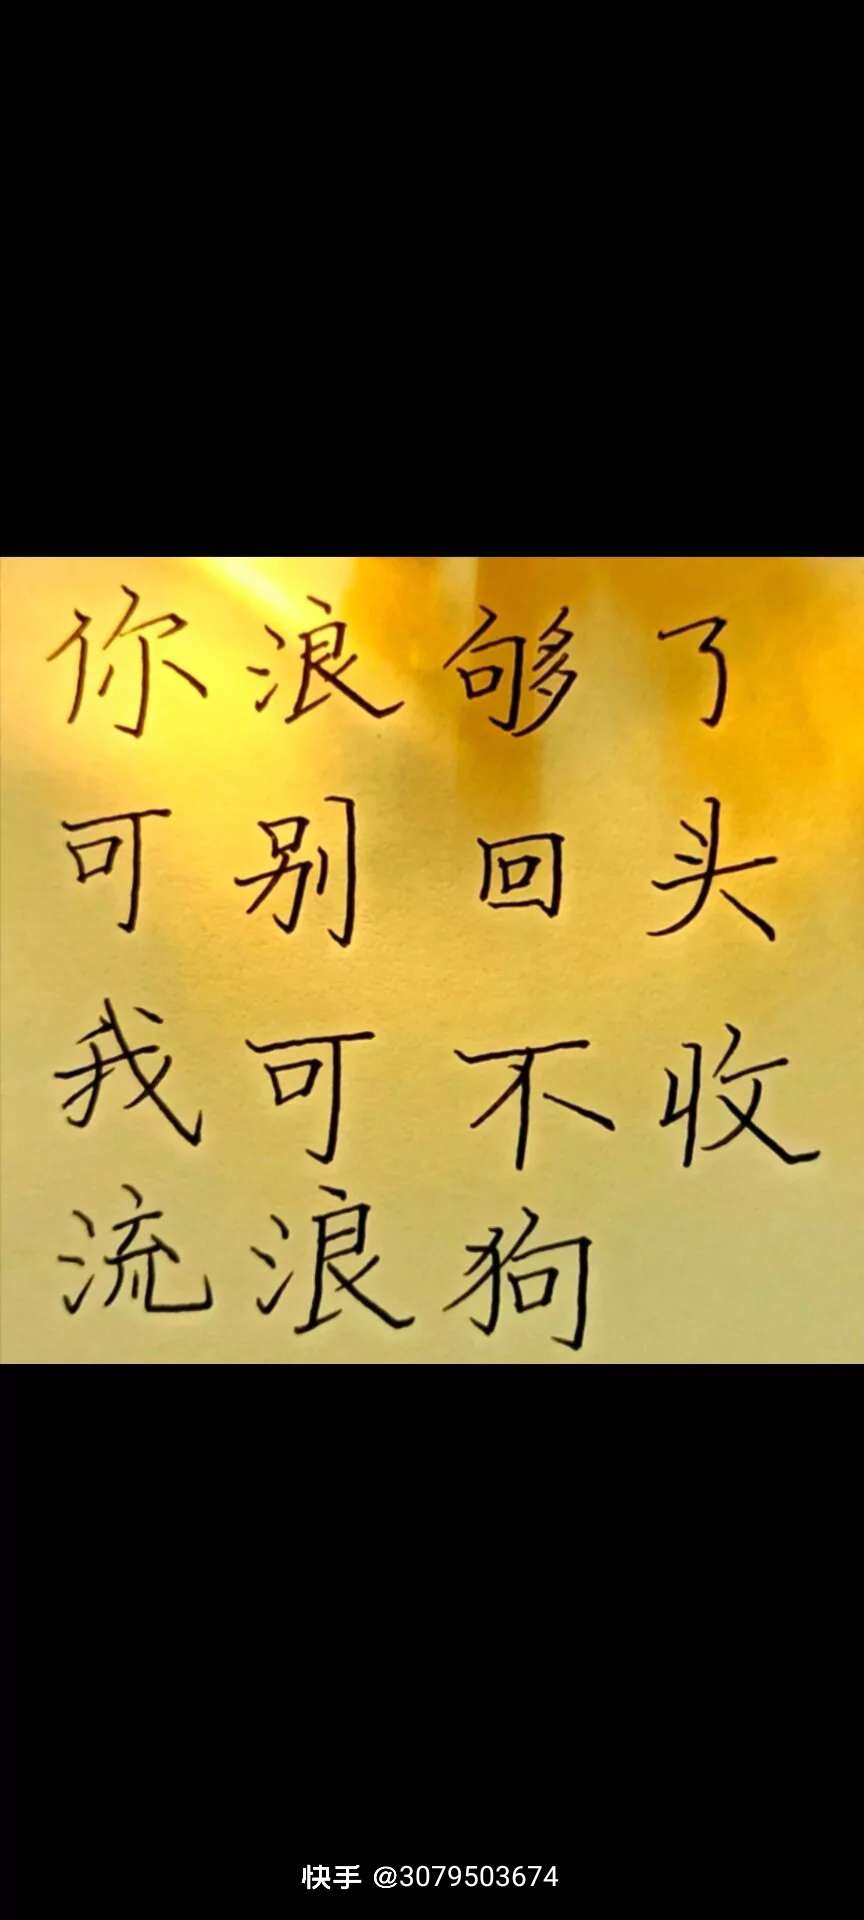 你浪够了
可别回头
我可不收
流浪狗
快手 @3079503674